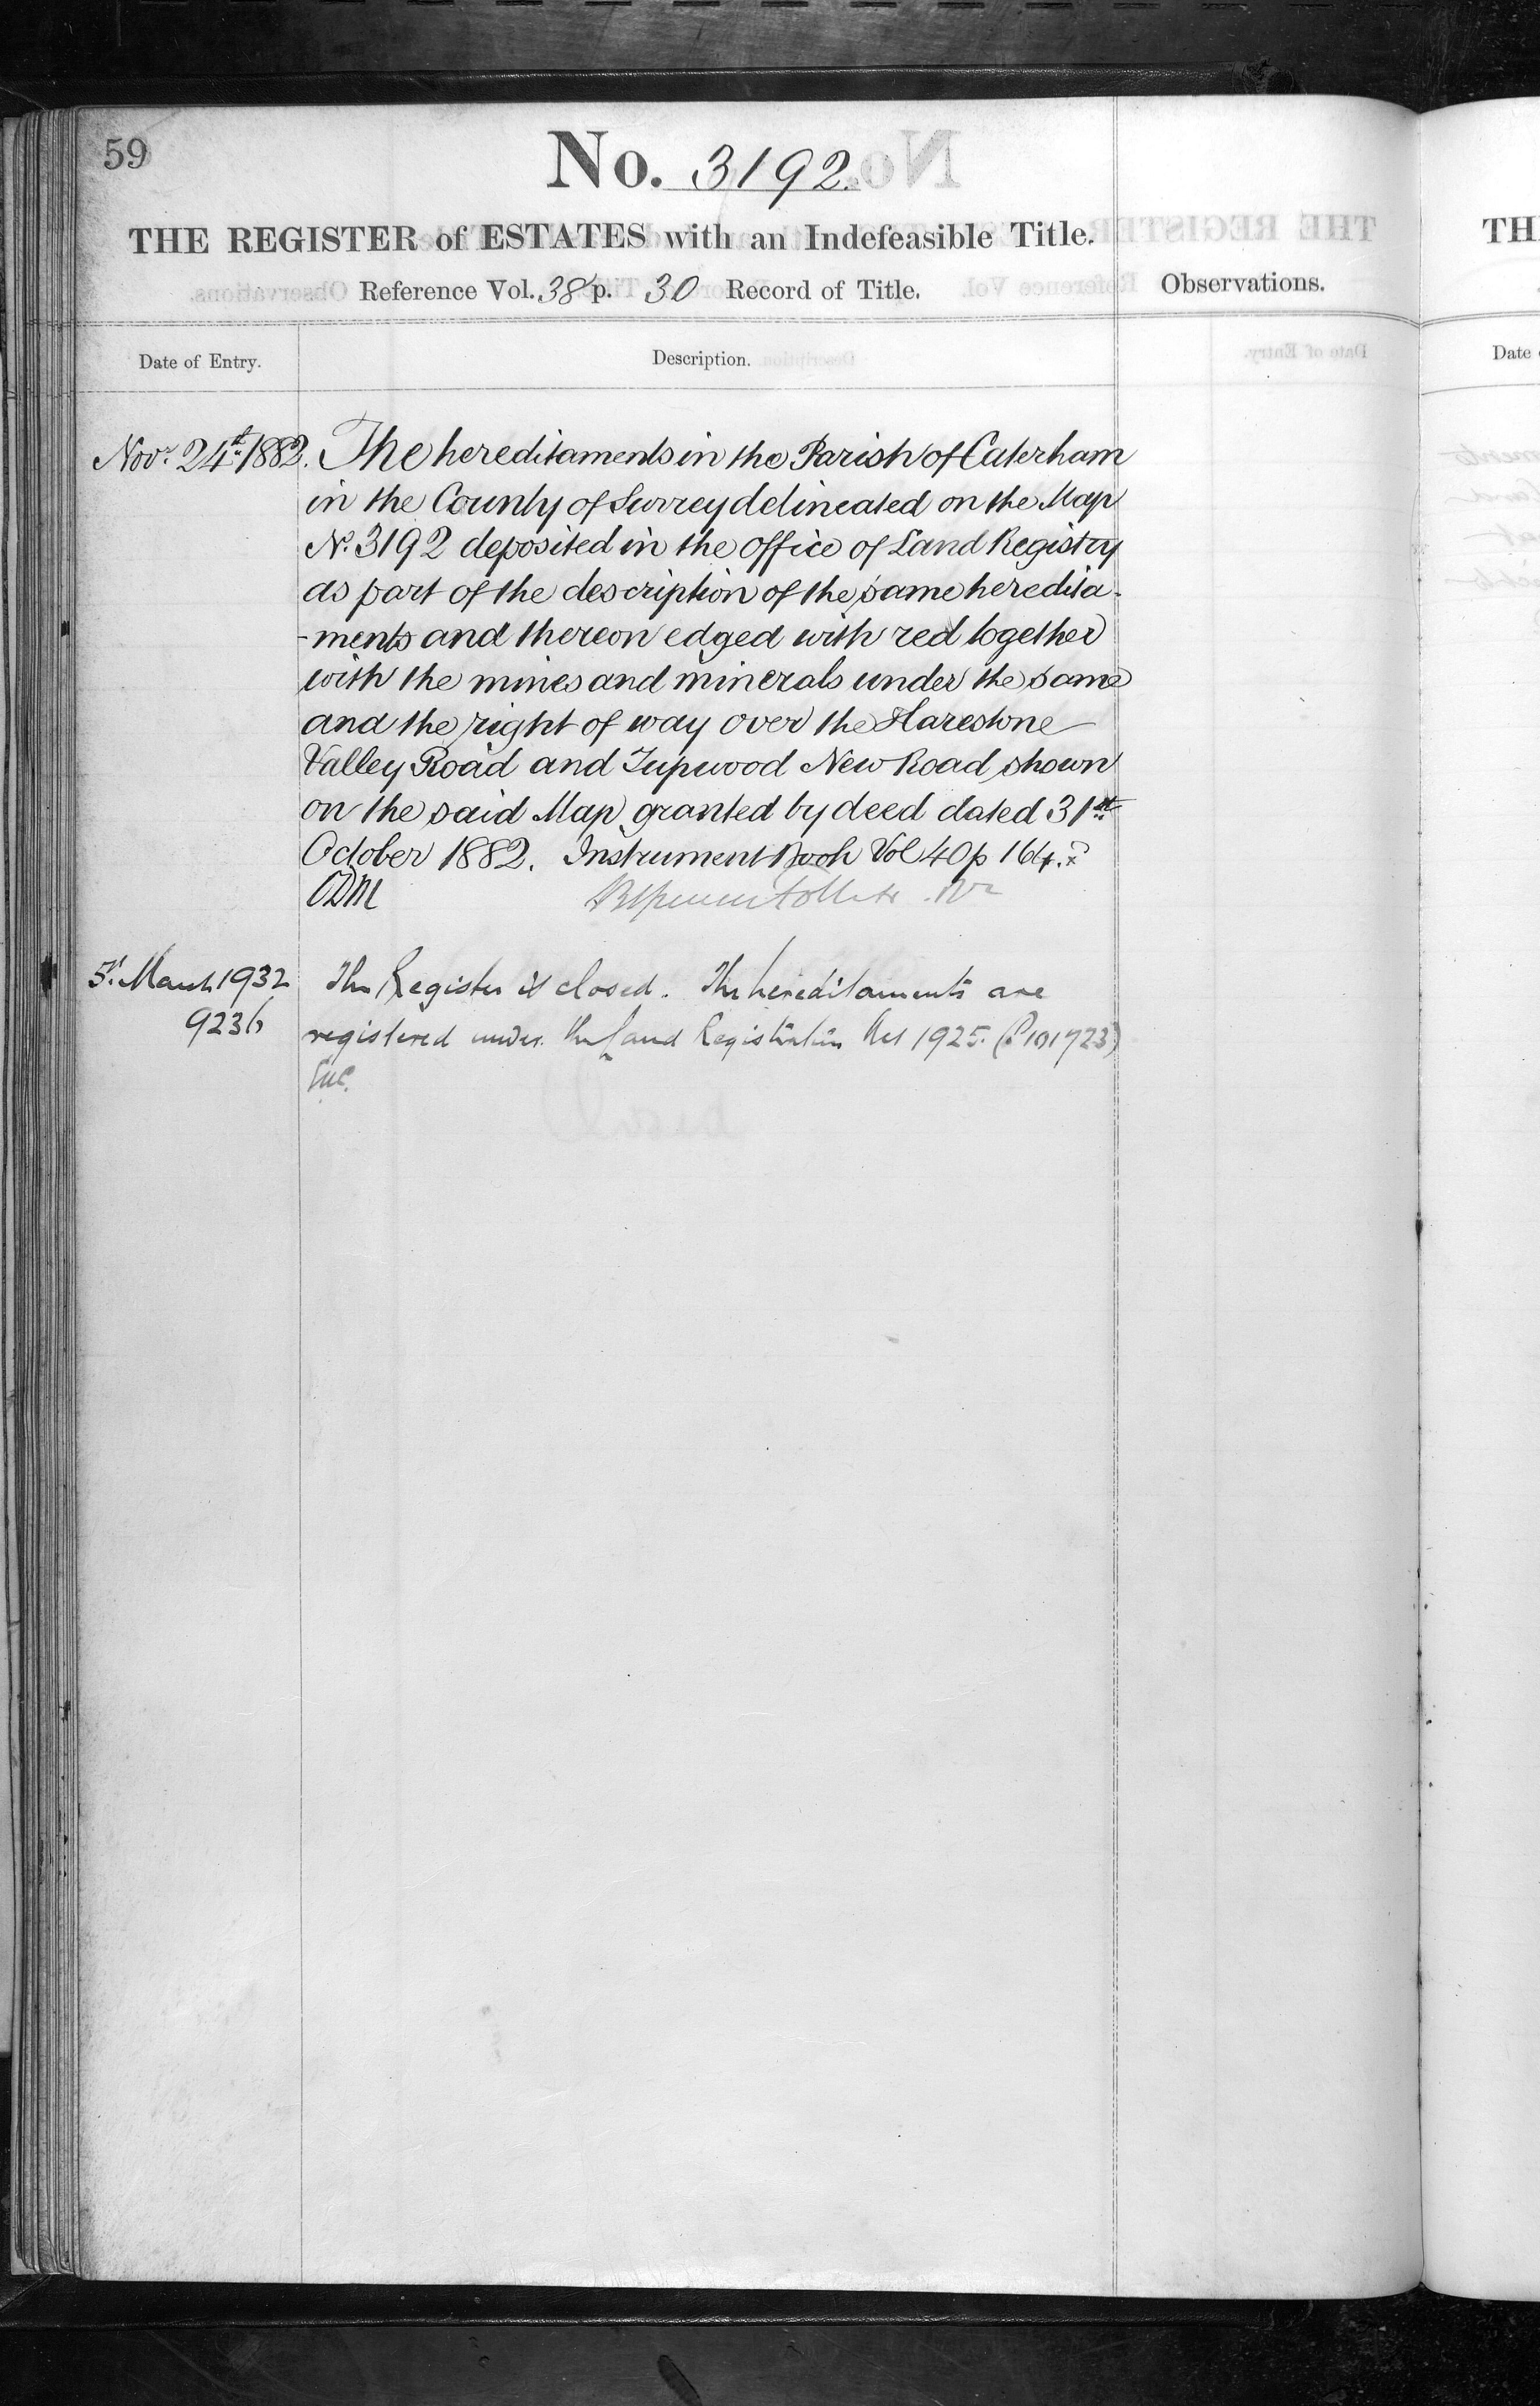 59
No. 3192.
THE REGISTER of ESTATES with an Indefeasible Title.
Reference Vol. 38 p. 30 Record of Title.
Observations.
Date of Entry.
Description.
Nov. 24th 1882. The hereditaments in the Parish of Caterham
in the County of Surrey delineated on the Map
No. 3192 deposited in the office of Land Registry
as part of the description of the same heredita-
-ments and thereon edged with red together
with the mines and minerals under the same
and the right of way over the Harestone
Valley Road and Tupwood New Road shown
on the said Map granted by deed dated 31st
October 1882. Instrument Book Vol 40 p 164.
ODM
5th March 1932 The Register is closed. The hereditaments are
9236 registered under the Land Registration Act 1925. (P101723)
TH
Date